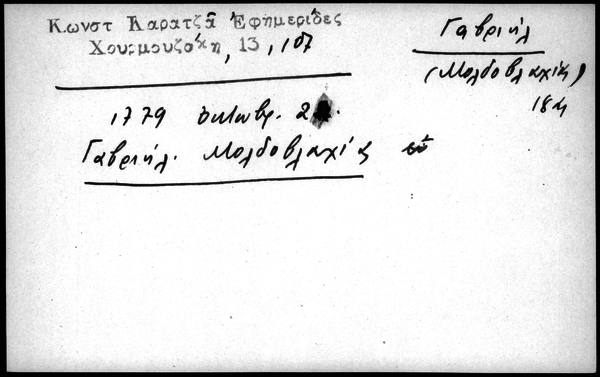 Κωνστ Καρατζᾶ Ἐφημερίδες
Χουρμουζάκη, 13, 107
Γαβριήλ
(Μολδοβλαχίας)
18
1779 Ὀκτωβρ. 2
Γαβριήλ. Μολδοβλαχίας